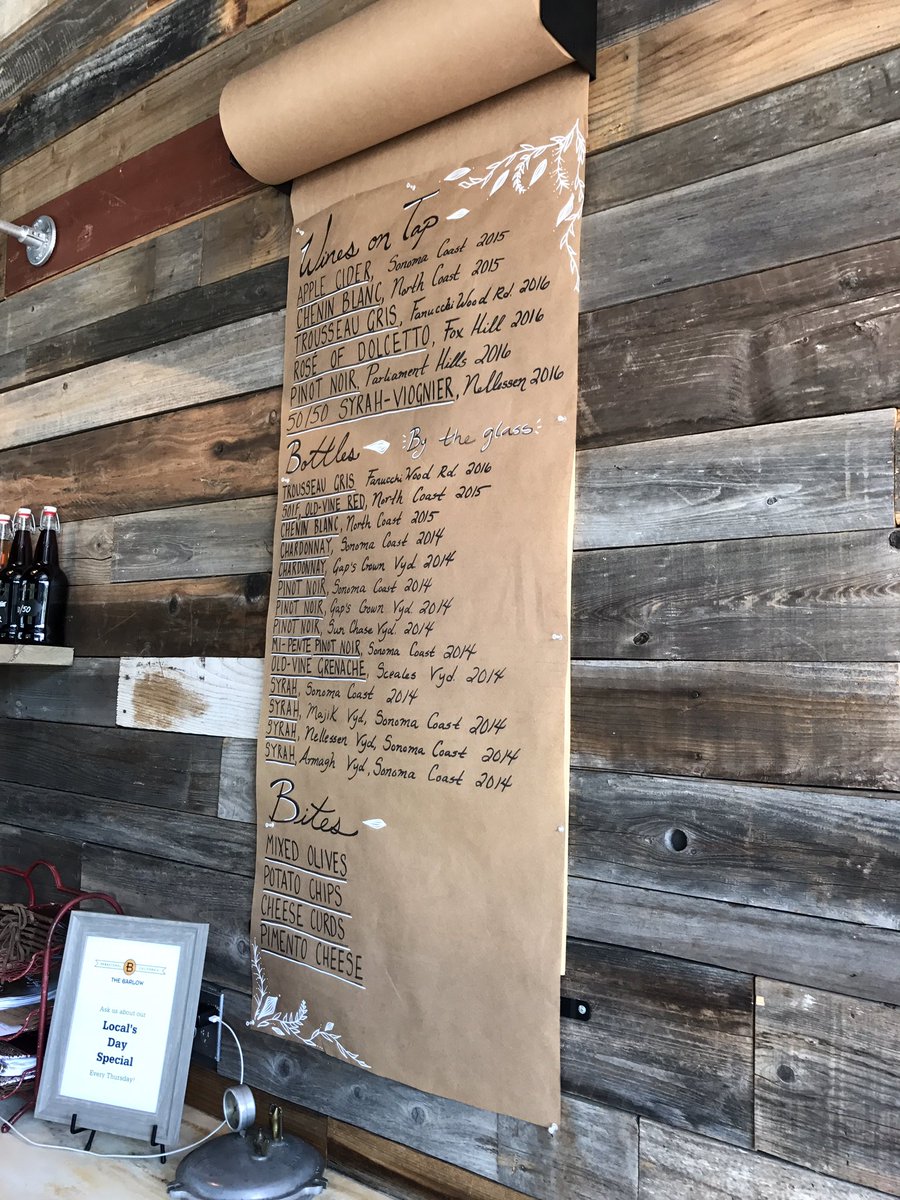 Wines on Tap
APPLE CIDER, Sonoma Coast 2015
CHENIN BLANC, North Coast 2015
TROUSSEAU GRIS, Fanucchi Wood Rd. 2016
ROSÉ OF DOLCETTO, Fox Hill 2016
PINOT NOIR, Parliament Hills 2016
50/50 SYRAH-VIOGNIER, Nellessen 2016
Bottles By the glass
TROUSSEAU GRIS Fanucchi Wood Rd. 2016
501F, OLD-VINE RED, North Coast 2015
CHENIN BLANC, North Coast 2015
CHARDONNAY, Sonoma Coast 2014
CHARDONNAY, Gap's Crown Vyd. 2014
PINOT NOIR, Sonoma Coast 2014
PINOT NOIR, Gap's Crown Vyd. 2014
PINOT NOIR, Sun Chase Vyd. 2014
MI-PENTE PINOT NOIR, Sonoma Coast 2014
OLD-VINE GRENACHE, Sceales Vyd. 2014
SYRAH, Sonoma Coast 2014
SYRAH, Majik Vyd, Sonoma Coast 2014
SYRAH, Nellessen Vyd, Sonoma Coast 2014
SYRAH, Armagh Vyd, Sonoma Coast 2014
Bites
MIXED OLIVES
POTATO CHIPS
CHEESE CURDS
PIMENTO CHEESE
B
THE BARLOW
Ask us about our
Local's
Day
Special
Every Thursday!